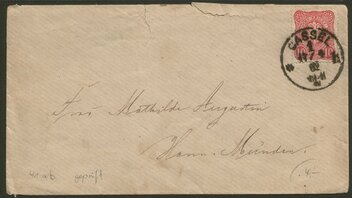 CASSEL
1
Frau Mathilde Augustin
Hann. Münden.
geprüft